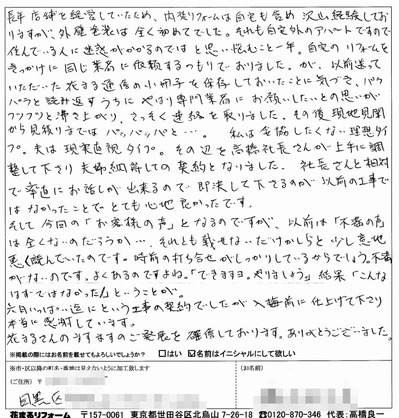 長年店舗を経営していたため、内装リフォームは自宅も含め沢山経験してお
りますが、外壁塗装は全く初めてでした。それも自宅外のアパートですので
住んでいる人に迷惑がかかるのではと思い悩むこと一年。自宅のリフォームを
きっかけに同じ業者に依頼するつもりでおりました。が、以前送って
いただいた花まる通信の小冊子を保存しておいたことに気づき、パラ
パラと読み返すうちにやはり専門業者にお願いしたいとの思いが
フツフツと沸き上がり、さっそく連絡を取りました。その後現地見聞
から見積り までは パッパッパッと…。 私は妥協したくない理想タイ
プ。夫は現実直視タイプ。その辺を高橋社長さんが上手に調
整して下さり夫婦納得しての契約となりました。 社長さんと相対
で率直にお話しが出来るので 即決して下さるのが以前の工事で
はなかったことでとても心地良かったです。
そして今回の「お客様の声」となるのですが、以前は「不満の声
は全くないのだろうか…、それとも載せないだけかしらと少し意地
悪く読んでいたのです。時前の打ち合せがしっかりしているからでしょう。不満
がないのです。よくあるのですよね。「できますヨ。やりましょう」結果「こんな
はずではなかった」ということが。
六月いっぱい迄にという工事の契約でしたが 入梅前に仕上げて下さり
本当に感謝しています。
花まるさんのますますのご発展を確信しております。ありがとうございました。
※掲載の際にはお名前を載せてもよろしいでしょうか？ □はい ☑名前はイニシャルにして欲しい
※市・区以降の町名・番地は見えないように加工致します
（ご住所） 〒
（お名前）
目黒区
花まるリフォーム 〒157-0061 東京都世田谷区北烏山7-26-18 0120-870-346 代表：高橋良一